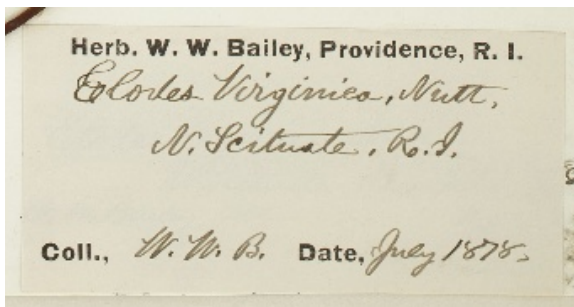 Herb. W. W. Bailey, Providence, R. I.
Elodes Virginica, Nutt,
N. Scituate, R. I.
Coll., W. W. B. Date, July 1878.